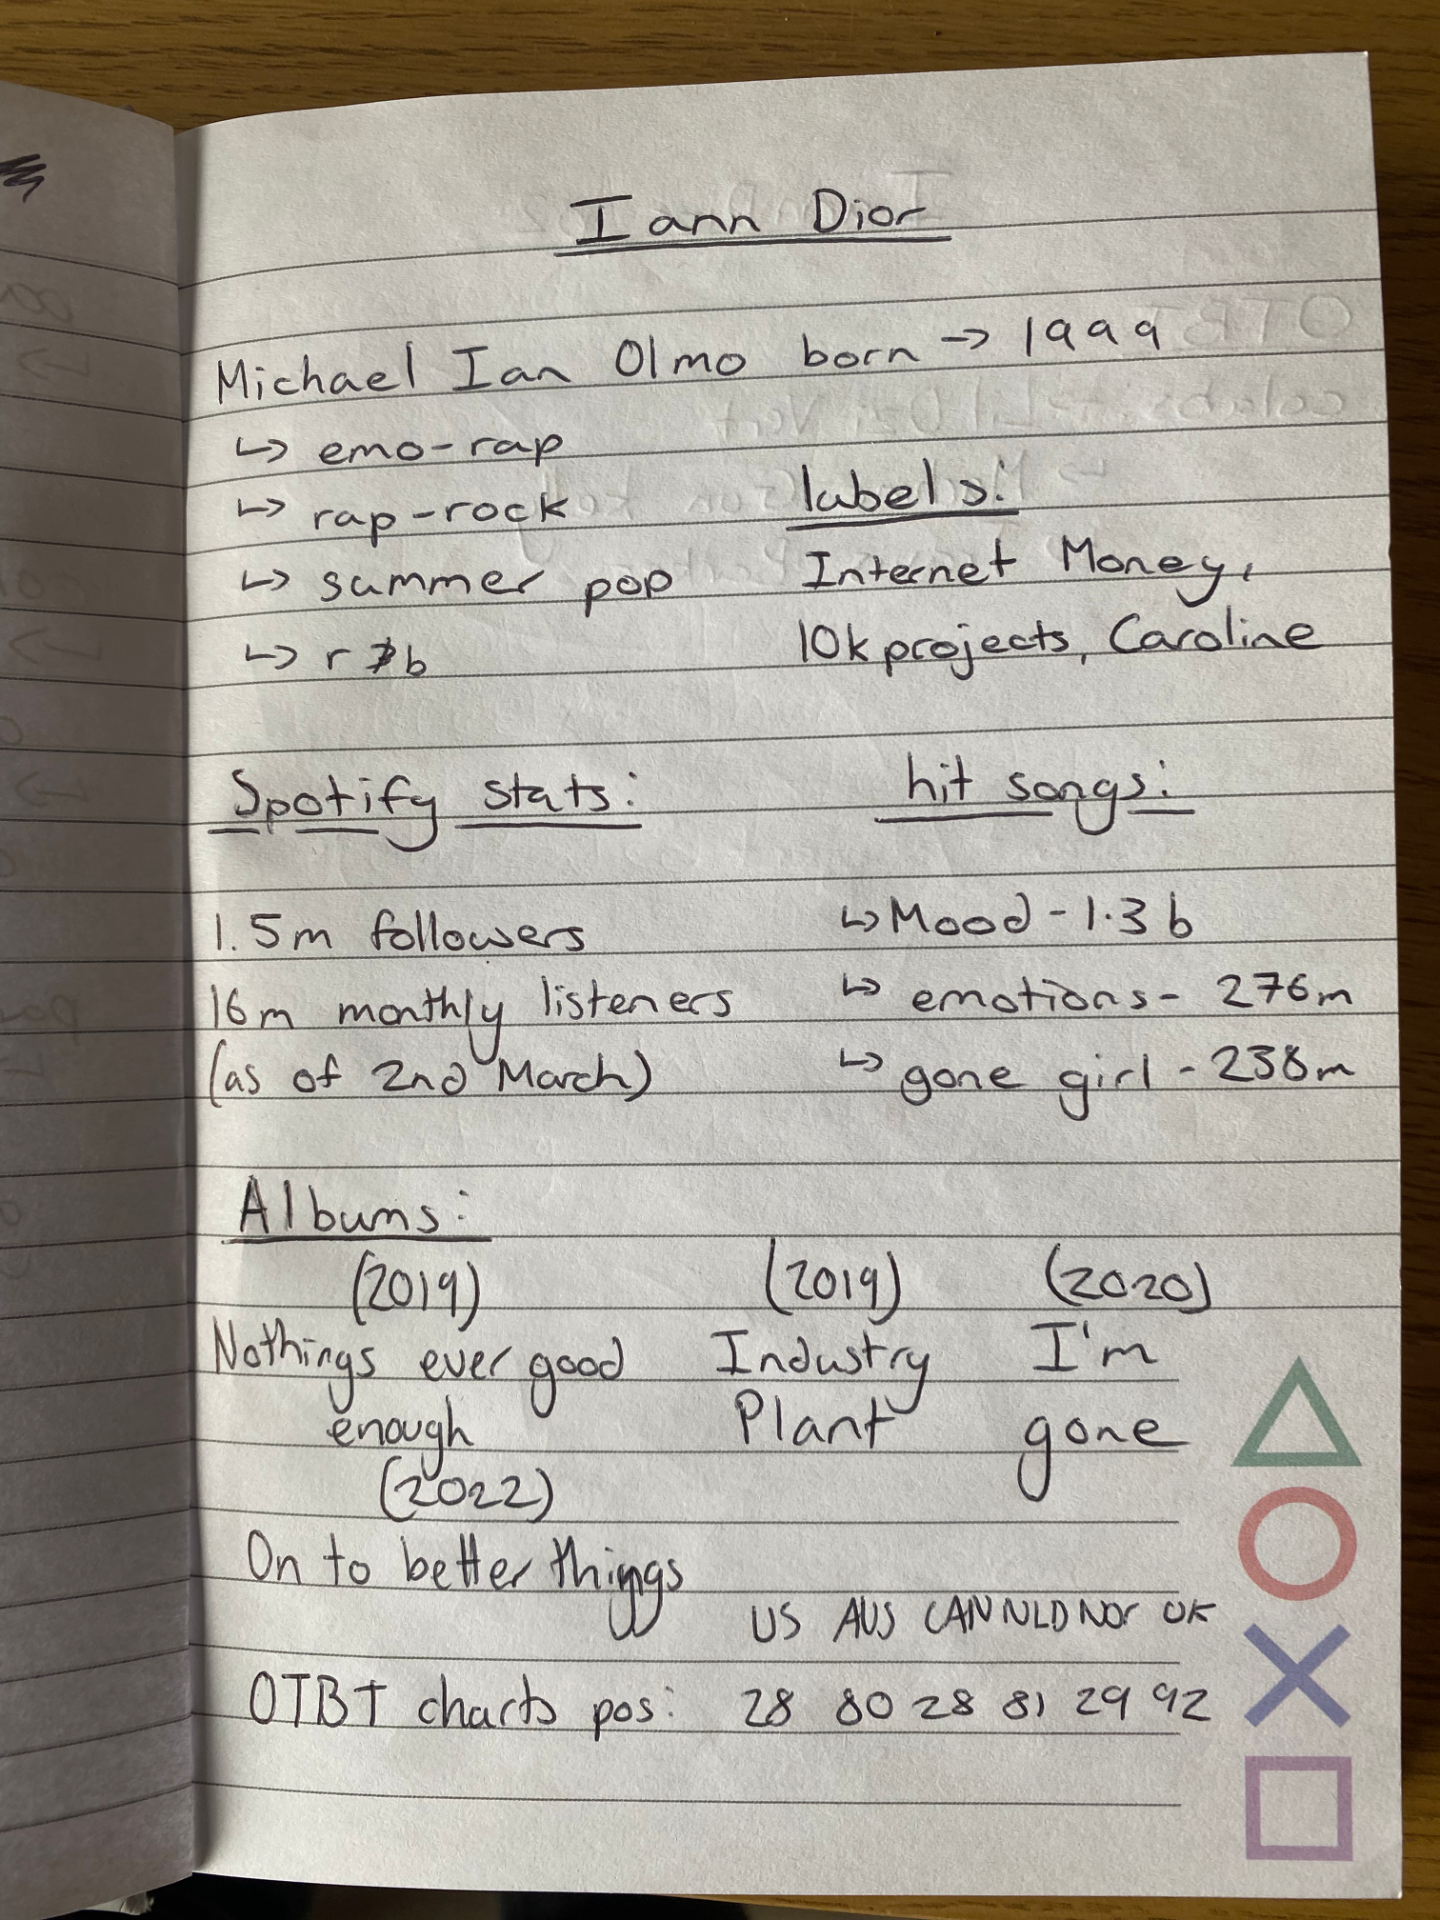 Iann Dior
Michael Ian Olmo born → 1999
↳ emo-rap
↳ rap-rock
↳ summer pop
↳ r & b
labels:
Internet Money,
10k projects, Caroline
Spotify stats:
1.5m followers
16m monthly listeners
(as of 2nd March)
hit songs:
↳ Mood - 1.3 b
↳ emotions - 276m
↳ gone girl - 238m
Albums:
(2019)
Nothings ever good
enough
(2019)
Industry
Plant
(2020)
I'm
gone
(2022)
On to better things
US AUS CAN NLD NOr UK
OTBT charts pos: 28 80 28 81 29 92